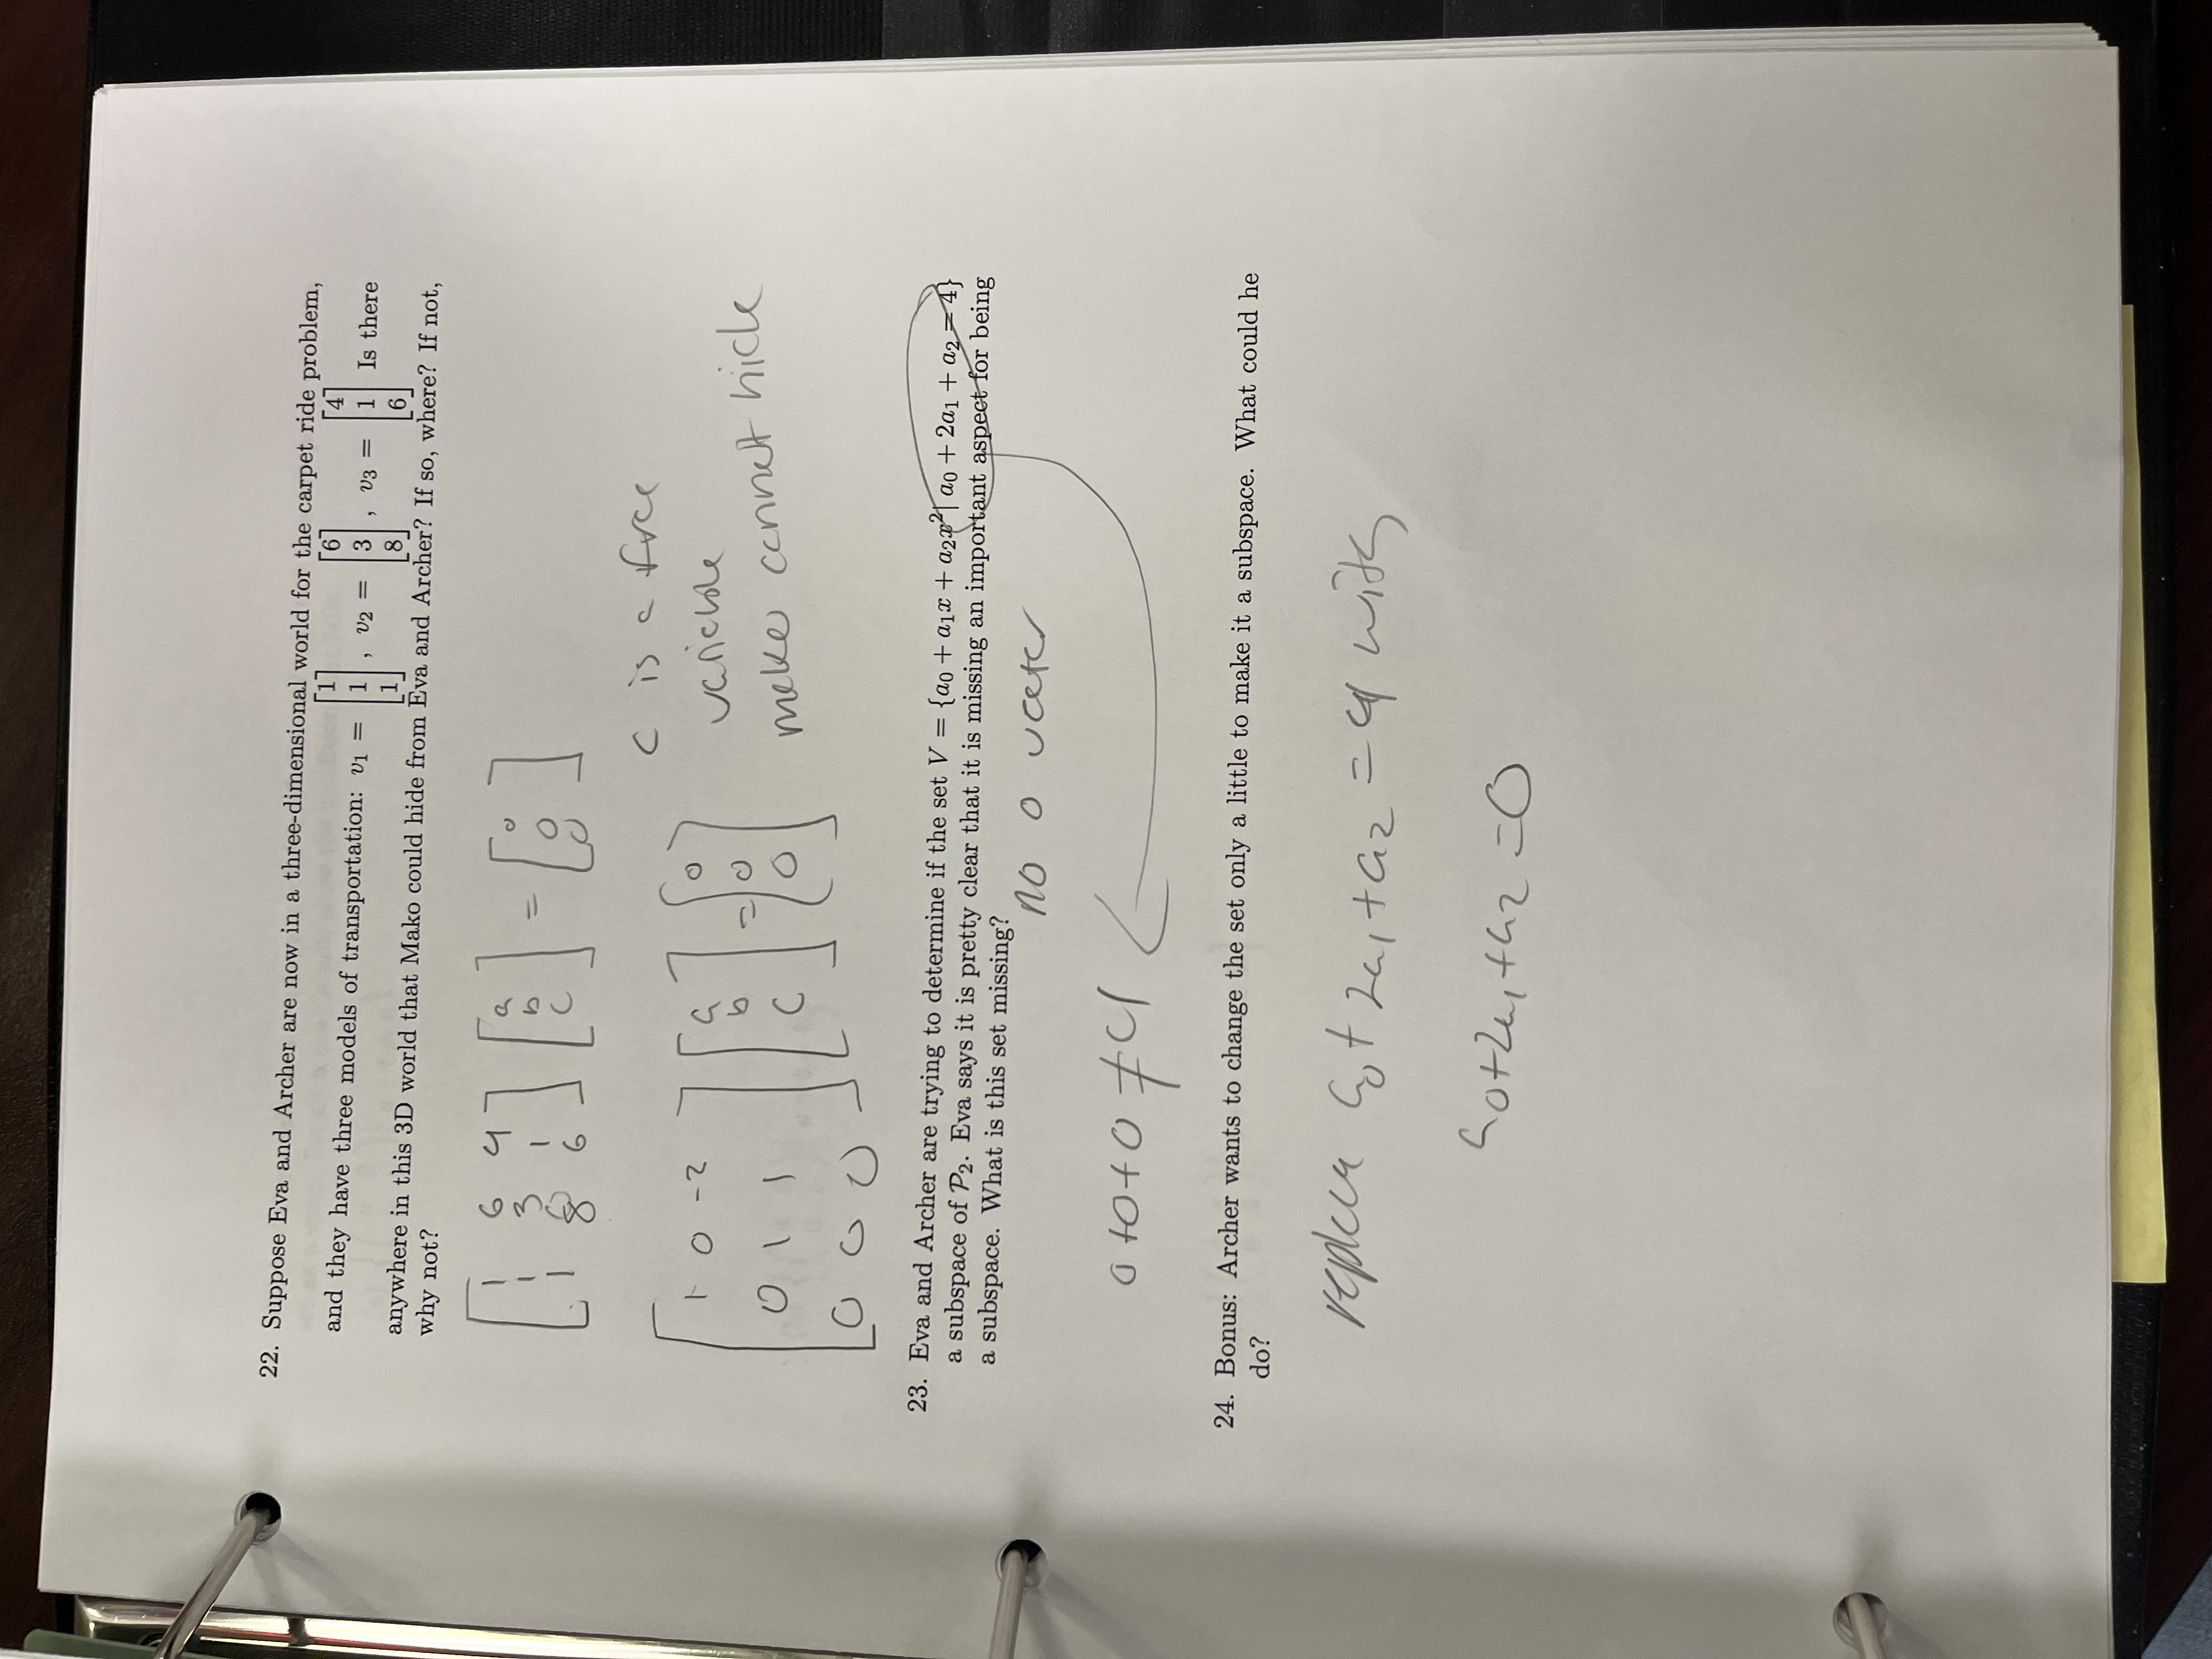 22. Suppose Eva and Archer are now in a three-dimensional world for the carpet ride problem,
and they have three models of transportation: v₁ = [1 1 1], v₂ = [6 3 8], v₃ = [4 1 6] Is there
anywhere in this 3D world that Mako could hide from Eva and Archer? If so, where? If not,
why not?
[1 6 4] [a] = [0]
[1 3 1] [b] = [0]
[1 8 6] [c] = [0]
c is a free
variable
[1 0 -2] [a] = [0]
[0 1 1] [b] = [0]
[0 0 0] [c] = [0]
mako cannot hide
23. Eva and Archer are trying to determine if the set V = {a₀ + a₁x + a₂x²| a₀ + 2a₁ + a₂ = 4}
a subspace of P₂. Eva says it is pretty clear that it is missing an important aspect for being
a subspace. What is this set missing?
no 0 vector
0+0+0 ≠ 4
24. Bonus: Archer wants to change the set only a little to make it a subspace. What could he
do?
replace a₀ + 2a₁ + a₂ = 4 with
a₀+2a₁+a₂ = 0